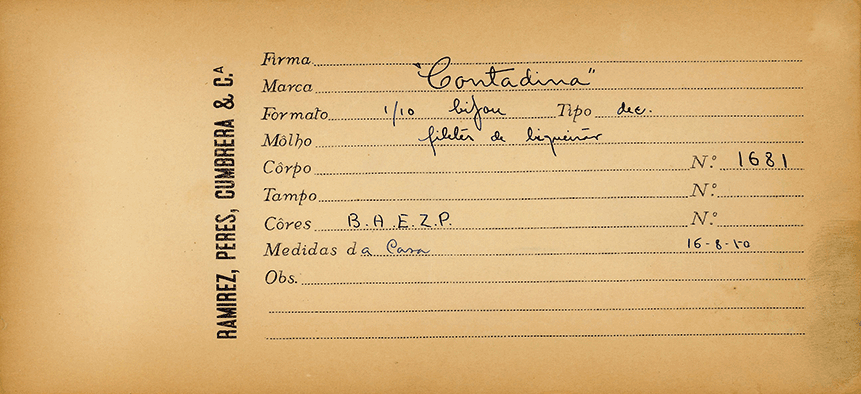 RAMIREZ, PERES, CUMBRERA & C.A
Firma
Marca "Contadina"
Formato 1/10 bijou Tipo dec.
Môlho filetes de biqueirão
Côrpo N.º 1681
Tampo N.º
Côres B.A.E.Z.P. N.º
Medidas da Casa 16-8-50
Obs.